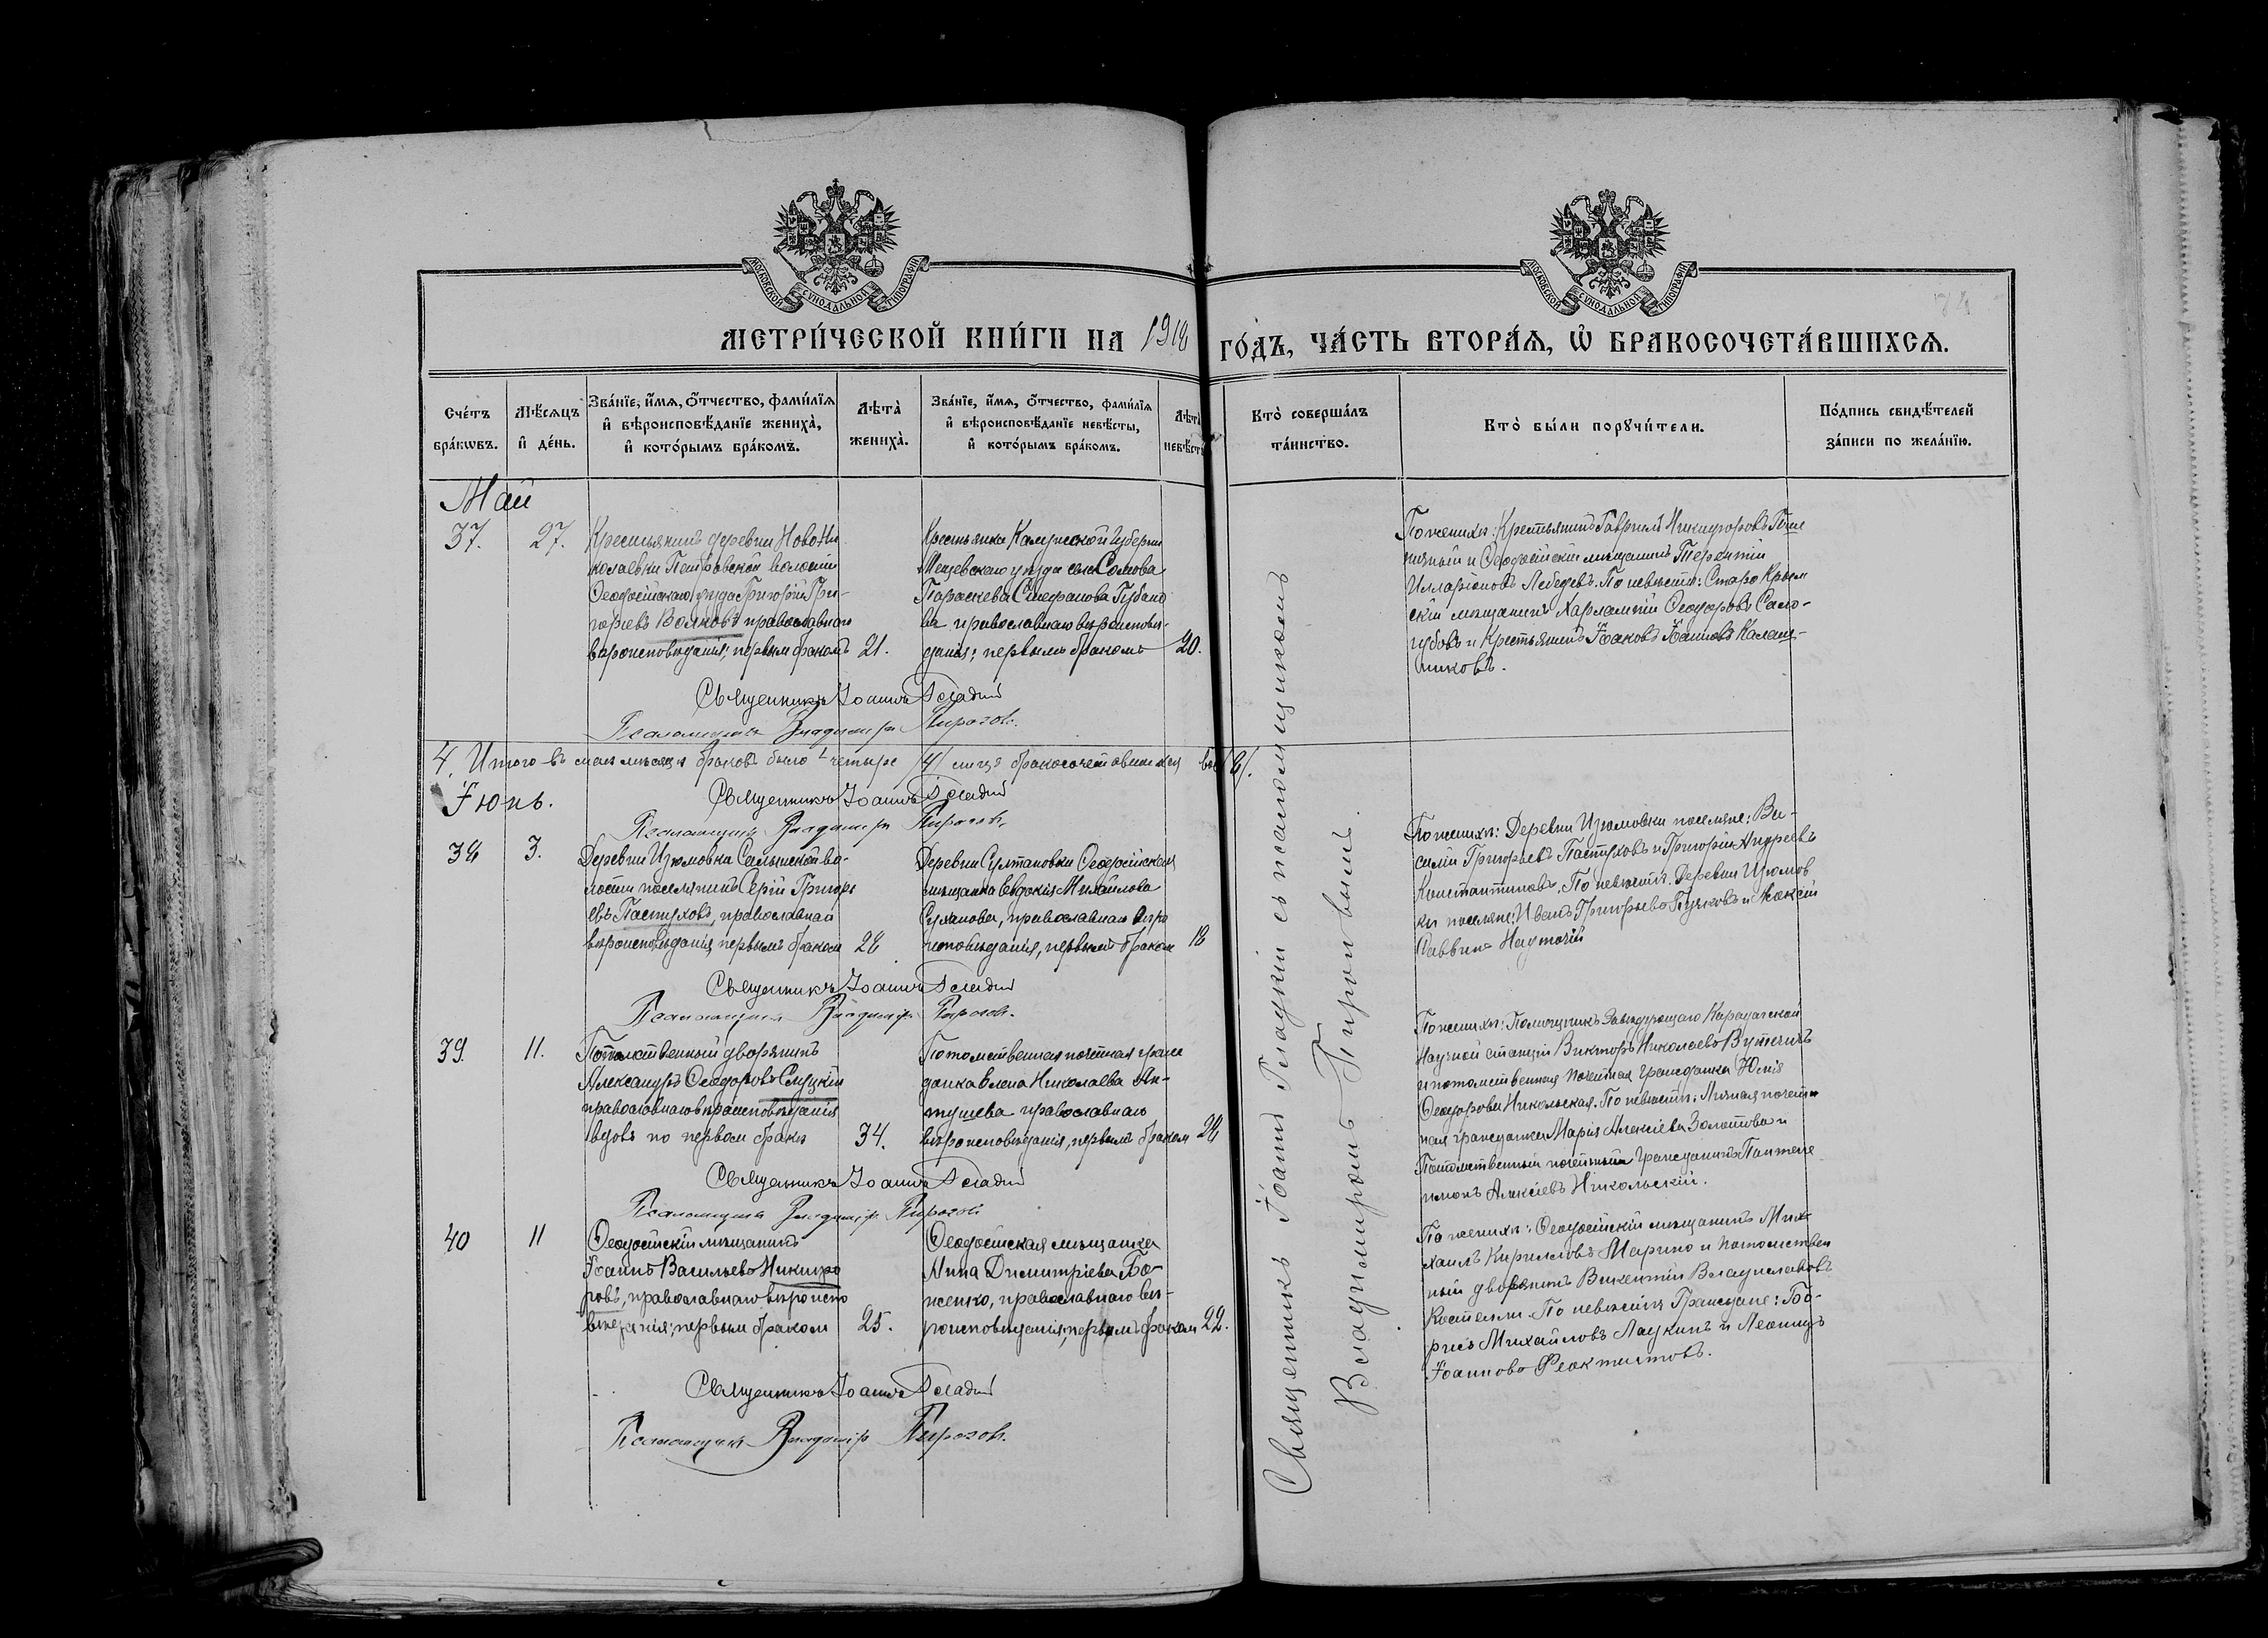 МОСКОВСКОЙ СѴНОДАЛЬНОЙ ТИПОГРАФІИ
МОСКОВСКОЙ СѴНОДАЛЬНОЙ ТИПОГРАФІИ
МЕТРИ́ЧЕСКОЙ КНИ́ГИ НА 1918 ГО́ДЪ, ЧА́СТЬ ВТОРА́Я, Ѡ҆ БРАКОСОЧЕТА́ВШИХСЯ.
Сче́тъ бра́кѡвъ.
Мѣ́сяцъ и҆ де́нь.
Зва́нїе, и҆́мя, ѻ҆́тчество, фами́лїя и҆ вѣроисповѣ́данїе жениха̀, и҆ кото́рымъ бра́комъ.
Лѣта̀ жениха̀.
Зва́нїе, и҆́мя, ѻ҆́тчество, фами́лїя и҆ вѣроисповѣ́данїе невѣ́сты, и҆ кото́рымъ бра́комъ.
Лѣта̀ невѣ́сты
Кто̀ соверша́лъ та́инство.
Кто̀ бы́ли порꙋчи́тели.
По́дпись свидѣ́телей за́писи по жела́нїю.
Май
37. 27.
Крестьянинъ деревни Ново-Ни
колаевки Петровской волости
Ѳеодосійскаго уѣзда Григорій Гри-
горьевъ Волковъ православнаго
вѣроисповѣданія, первымъ бракомъ 21.
Крестьянка Калужской губерніи
Мещевскаго уѣзда села Сомова
Параскева Стефанова Губано
ва православнаго вѣроисповѣ-
данія; первымъ бракомъ 20.
По женихѣ: Крестьянинъ Гавріилъ Никифоровъ
и Ѳеодосійскій мѣщанинъ Терентій
Илларіоновъ Лебедевъ. По невѣстѣ: Старо Крым
скій мѣщанинъ Харлампій Ѳеодоровъ Само-
губовъ и Крестьянинъ Іоаковъ Іоанновъ Калаш-
никовъ.
Священникъ Іоаннъ Гладкій
Псаломщикъ Владимиръ Пироговъ.
4. Итого въ маѣ мѣсяцѣ браковъ было четыре /4/ лицъ бракосочетавшихся /8/.
Іюнь.
Священникъ Іоаннъ Гладкій
Псаломщикъ Владимиръ Пироговъ.
38 3.
Деревни Изюмовки Салынской во-
лости поселянинъ Сергій Григорь
евъ Пастуховъ, православнаго
вѣроисповѣданія первымъ бракомъ 28
Деревни Султановки Ѳеодосійская
мѣщанка Евдокія Михайлова
православнаго вѣро
исповѣданія, первымъ бракомъ 18
По женихѣ: Деревни Изюмовки поселяне: Ва-
силій Григорьевъ Пастуховъ и Григорій Андреевъ
Константиновъ. По невѣстѣ: Деревни Изюмов
ки поселяне: Иванъ Григорьевъ и
Саввинъ
Священникъ Іоаннъ Гладкій
Псаломщикъ Владимиръ Пироговъ.
39. 11.
Потомственный дворянинъ
Александръ Ѳеодоровъ Слуцкій
православнаго вѣроисповѣданія
вдовъ по первомъ бракѣ 34.
Потомственная почетная граж
данка Елена Николаева Ан-
тушева православнаго
вѣроисповѣданія, первымъ бракомъ 28
По женихѣ: Помощникъ Завѣдующаго Карадагской
Научной станціи Викторъ Николаевъ
и потомственная почетная гражданка Юлія
Ѳеодорова Никольская. По невѣстѣ: Личная почет
ная гражданка Марія Алексіева Золотова и
Потомственный почетный гражданинъ Пантеле
имонъ Алексіевъ Никольскій.
Священникъ Іоаннъ Гладкій
Псаломщикъ Владимиръ Пироговъ
40 11
Ѳеодосійскій мѣщанинъ
Іоаннъ Васильевъ Никифо
ровъ, православнаго вѣроиспо
вѣданія, первымъ бракомъ 25.
Ѳеодосійская мѣщанка
Анна Димитріева Бо-
женко, православнаго вѣ-
роисповѣданія, первымъ бракомъ 22.
По женихѣ: Ѳеодосійскій мѣщанинъ Ми-
хаилъ Кирилловъ Марино и потомствен
ный дворянинъ Викентій Владиславовъ
Костелли. По невѣстѣ Граждане: Бо-
рисъ Михайловъ Лаукинъ и Леонидъ
Іоанновъ Феоктистовъ.
Священникъ Іоаннъ Гладкій
Псаломщикъ Владимиръ Пироговъ.
Священникъ Іоаннъ Гладкій съ псаломщикомъ
Владимиромъ Пироговымъ.